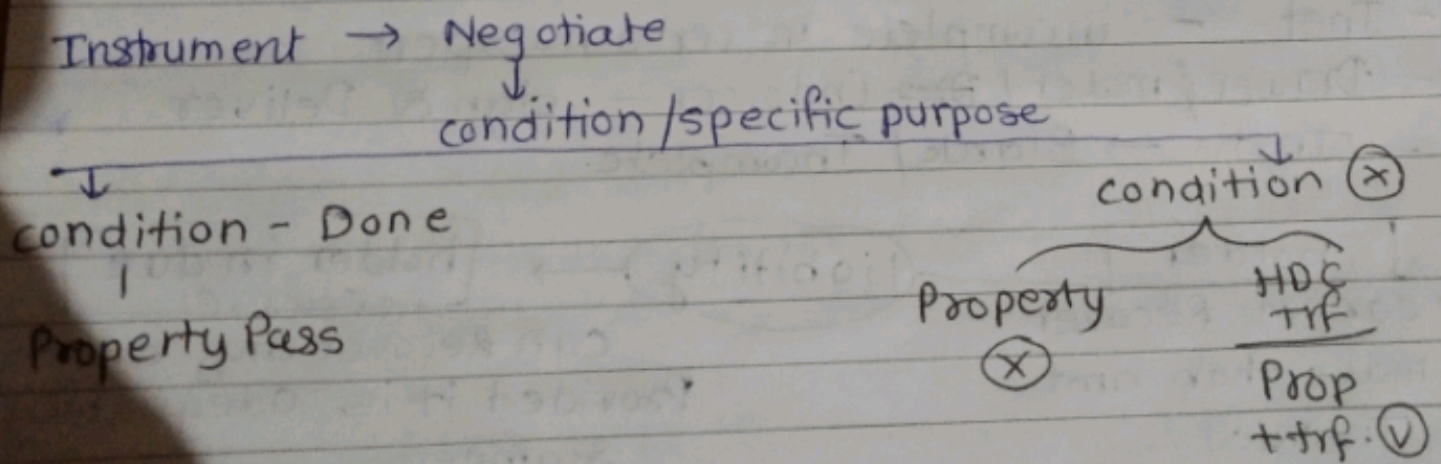 Instrument → Negotiate
↓
condition /specific purpose
↓ ↓
condition - Done
condition ⓧ
Property Pass
Property ⓧ
HDC
Trf
Prop
+ trf. ⓥ